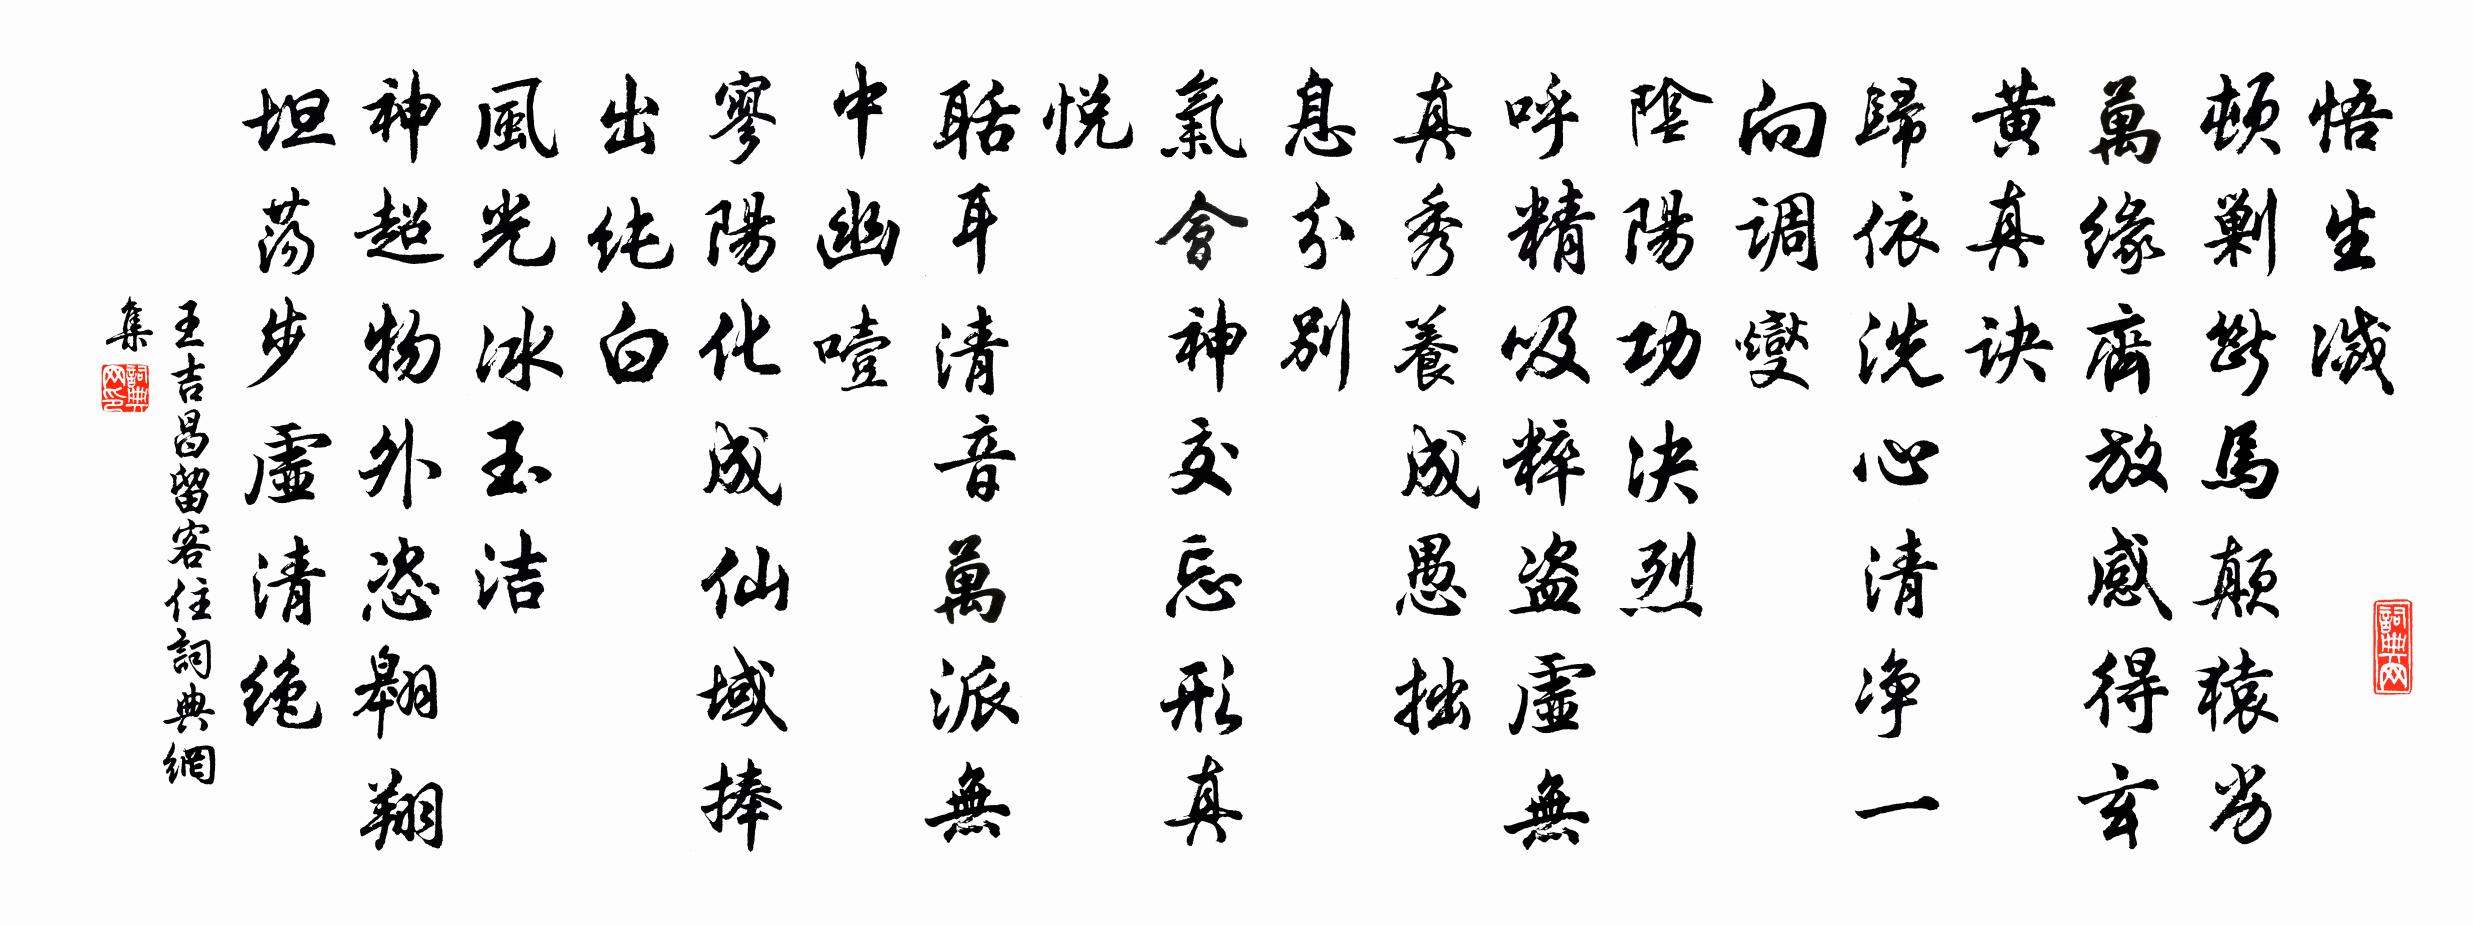 悟生滅
頓剿斷馬顛猿劣
萬緣齊放感得玄
黄真訣
歸依洗心清净一
向調燮
陰陽功决烈
呼精吸粹盗虚無
真秀養成愚拙
息分别
氣會神交忘形真
悦
聒耳清音萬派無
中幽噎
寥陽化成仙域捧
出纯白
風光冰玉洁
神超物外恣翱翔
坦荡步虚清绝
王吉昌留客住詞典網
集
詞典網
詞典網印